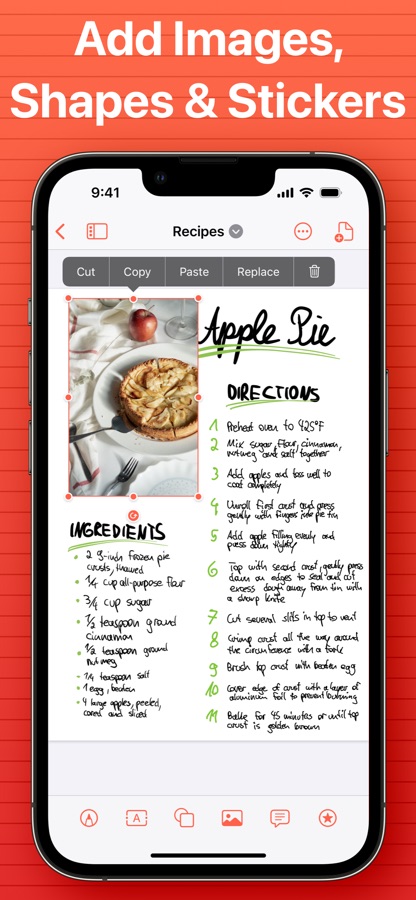 Add Images,
Shapes & Stickers
9:41
Recipes
Cut Copy Paste Replace
Apple Pie
DIRECTIONS
1 Preheat oven to 425°F
2 Mix sugar, flour, cinnamon,
nutmeg and salt together
3 Add apples and toss well to
coat completely
4 Unroll first crust and press
gently with fingers into pie tin
5 Add apple filling evenly and
press down tightly
6 Top with second crust, gently press
down on edges to seal and cut
excess dough away from tin with
a sharp knife
7 Cut several slits in top to vent
8 Crimp crust all the way around
the circumference with a fork
9 Brush top crust with beaten egg
10 Cover edge of crust with a layer of
aluminum foil to prevent burning
11 Bake for 45 minutes or until top
crust is golden brown
INGREDIENTS
• 2 9-inch frozen pie
crusts, thawed
• 1/4 cup all-purpose flour
• 3/4 cup sugar
• 1/2 teaspoon ground
cinnamon
• 1/2 teaspoon ground
nutmeg
- 1/4 teaspoon salt
• 1 egg, beaten
• 4 large apples, peeled,
cored and sliced
A